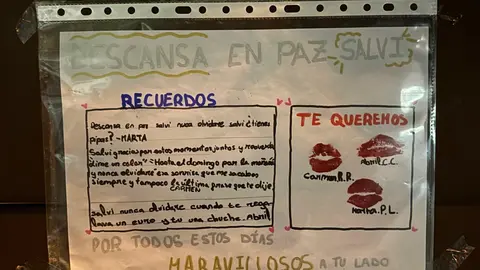 DESCANSA EN PAZ SALVI
RECUERDOS
Descansa en paz salvi nunca olvidare salvi ¿tienes
pipas? -MARTA
Salvi gracias por estos momentos juntos y recuerda
dime un color "-Hasta el domingo por la mañana
y nunca olvidare esa sonrisa que me sacabas
siempre y tampoco la última frase que te dije.
CARMEN
salvi nunca olvidare cuando te
un euro y tu una chuche. Abril
TE QUEREMOS
Carmen R.R.
Abril C.C.
Marta P.L.
POR TODOS ESTOS DÍAS
MARAVILLOSOS A TU LADO